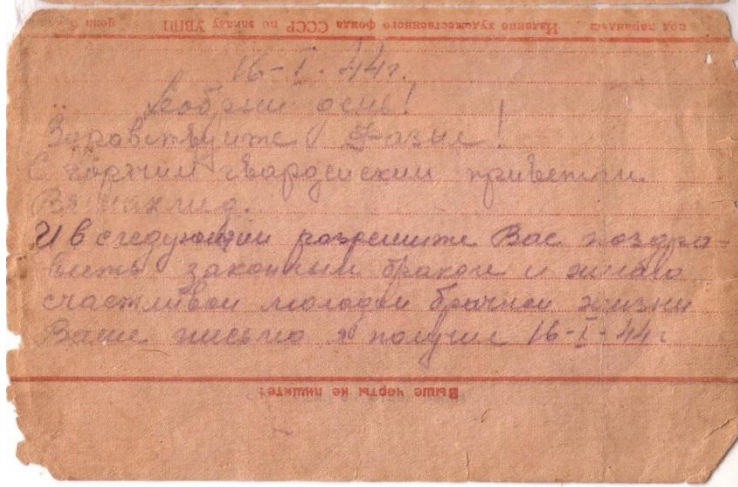 под карандаш Издание художественного фонда СССР по заказу УВПП Цена
16-I-44г.
Добрый день!
Здравствуйте Фазыл!
С горячим гвардейским приветом
И в следующии разрешите Вас поздра-
вить законным браком и желаю
счастливой молодой брачной жизни
Ваше письмо я получил 16-I-44г
Выше черты не пишите!